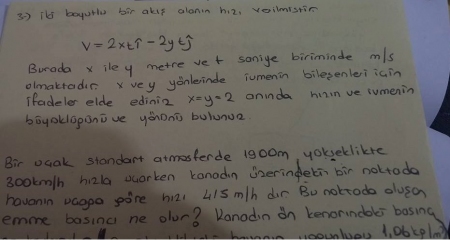 3-) iki boyutlu bir akış alanın hızı verilmiştir
V = 2xtî - 2ytĵ
Burada x ile y metre ve t saniye biriminde m/s
olmaktadır. x ve y yönlerinde ivmenin bileşenleri için
ifadeler elde ediniz x=y=2 anında hızın ve ivmenin
büyüklüğünü ve yönünü bulunuz
Bir uçak standart atmosferde 1900m yükseklikte
300km/h hızla uçarken kanadın üzerindeki bir noktada
havanın uçağa göre hızı 415 m/h dır Bu noktada oluşan
emme basıncı ne olur? Kanadın ön kenarındaki basınç
havanın yoğunluğu 1,06 kg/m³